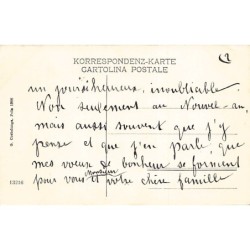 KORRESPONDENZ-KARTE
CARTOLINA POSTALE
un jour si heureux, inoubliable!
Non seulement au Nouvel-an,
mais aussi souvent que j'y
pense et que j'en parle, que
mes voeux de bonheur se forment
pour vous Monsieur et votre chère famille